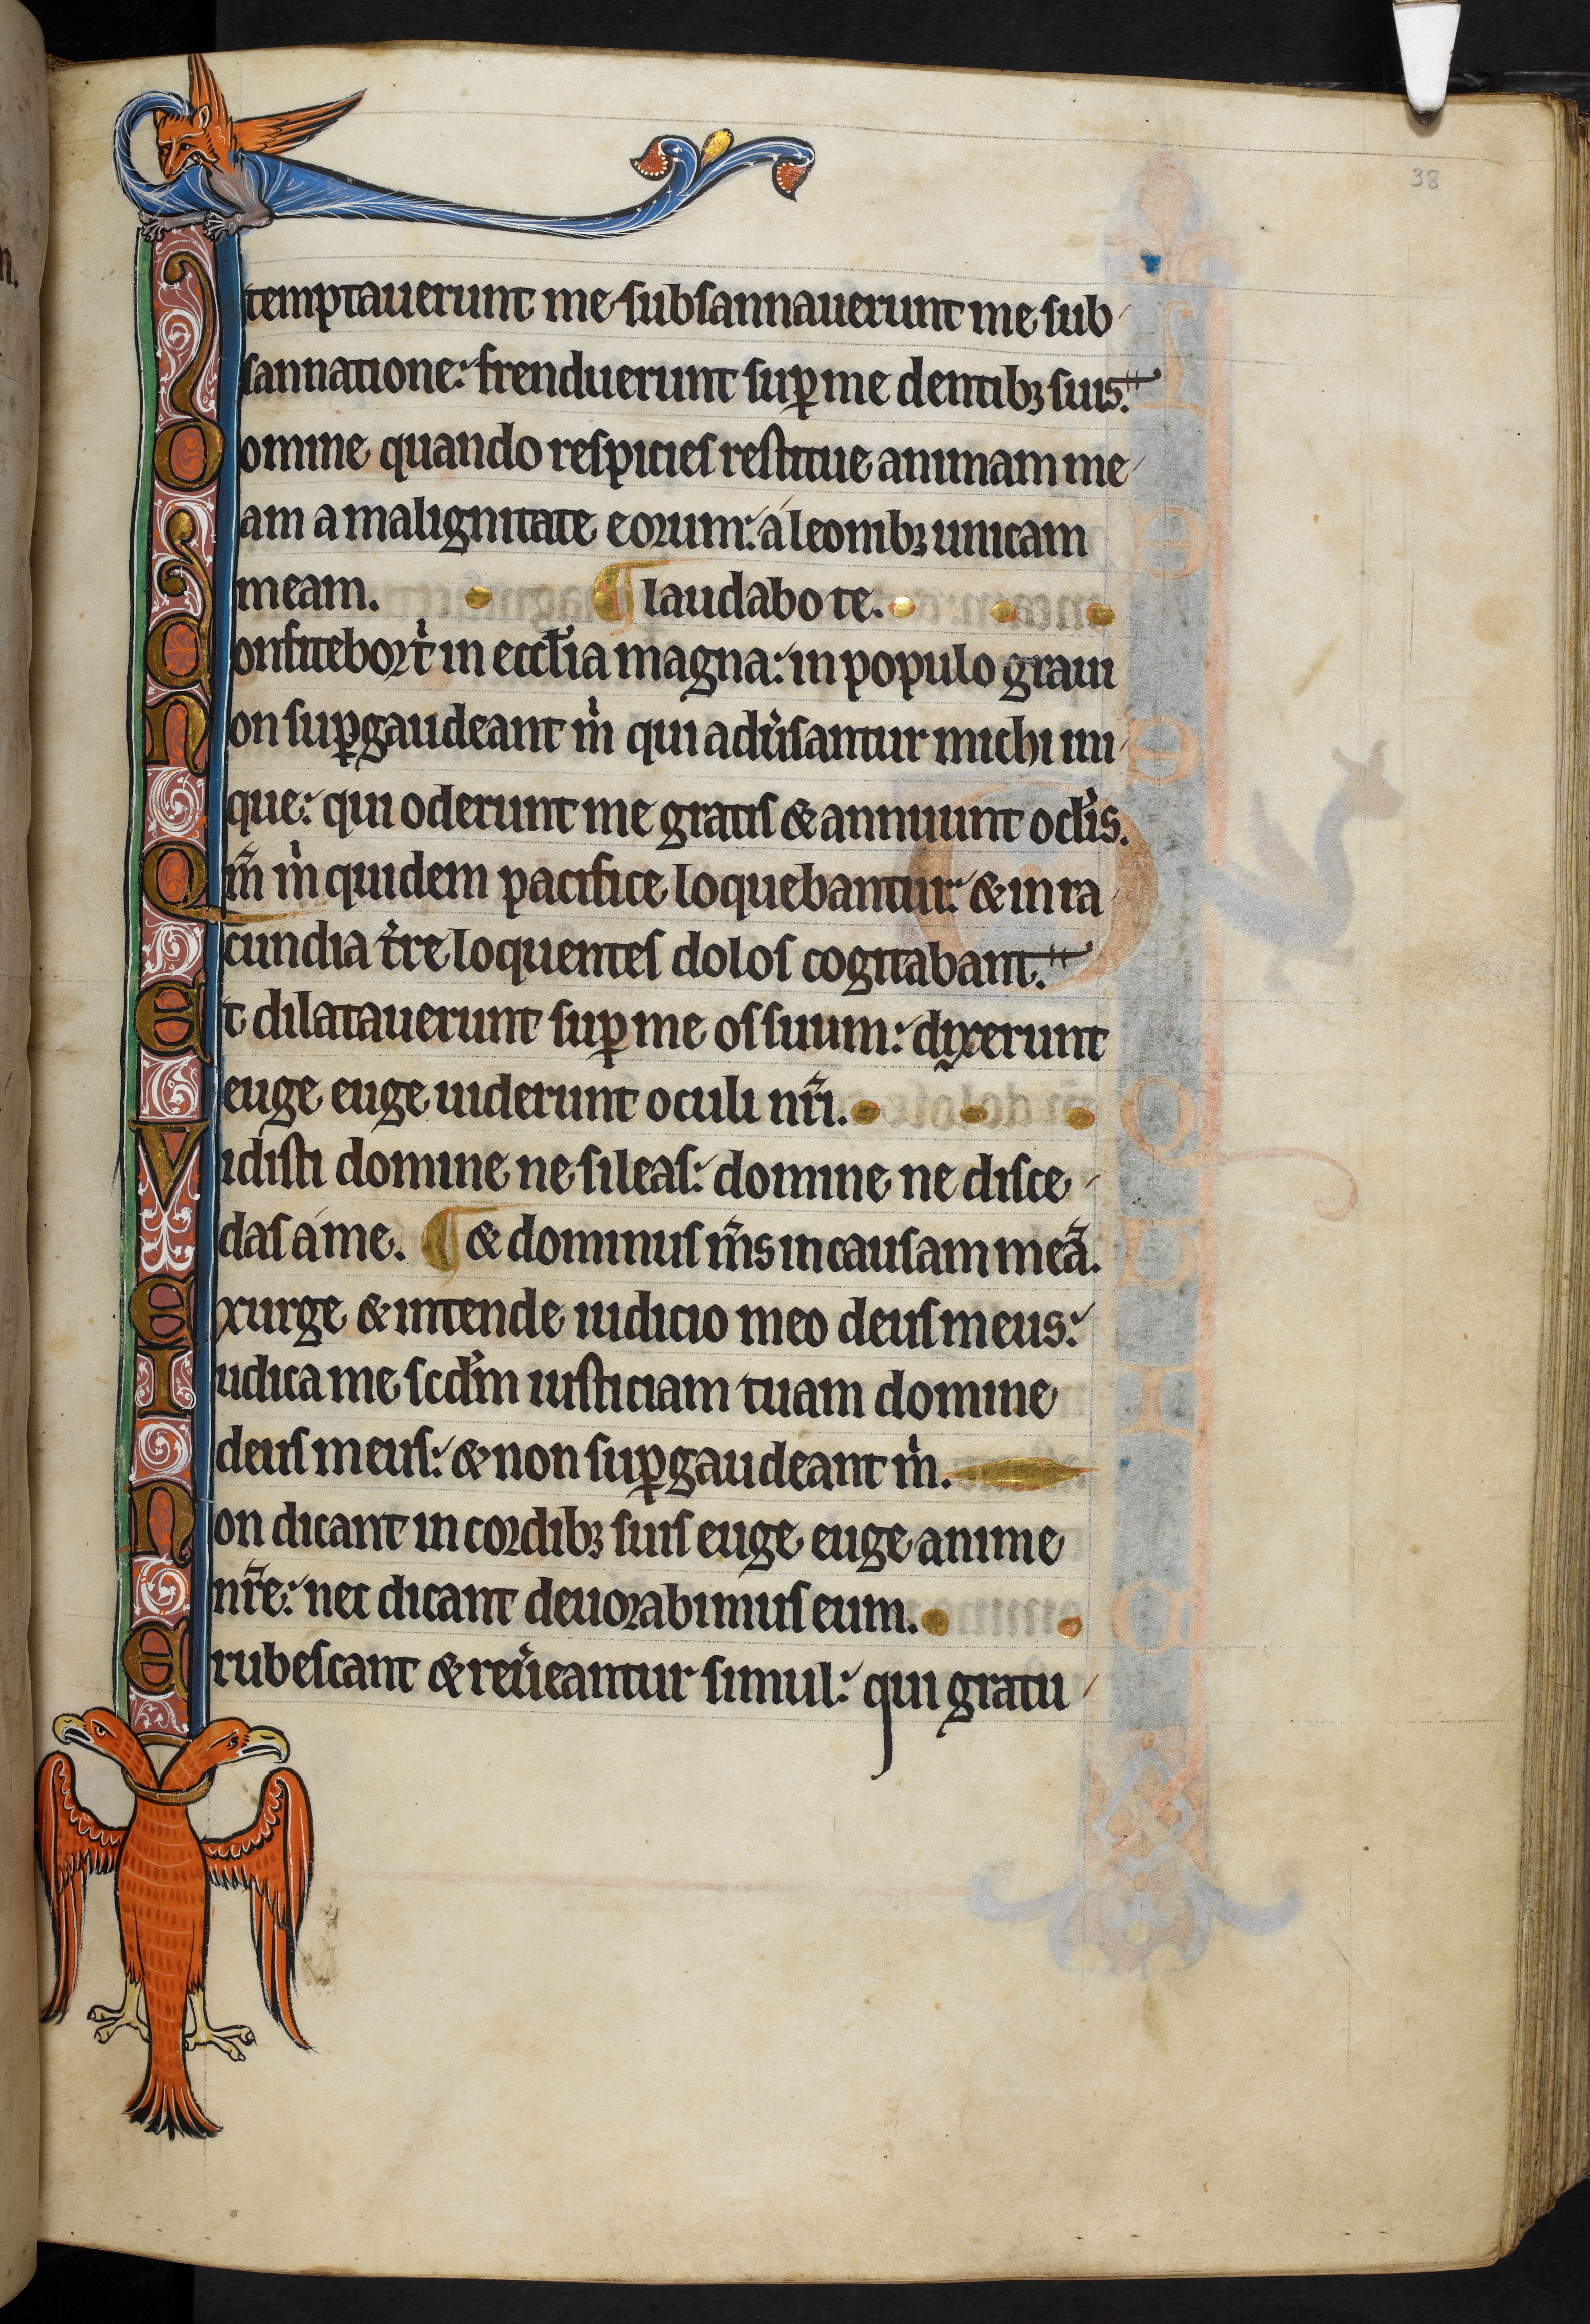 38
temptauerunt me subsannauerunt me sub
sannatione: frenduerunt suꝑ me dentibꝫ suis.
Domine quando respicies restitue animam me
am a malignitate eorum: a leonibꝫ unicam
meam. ¶ laudabo te.
Confitebor t̉ in eccl̉ia magna: in populo graui
Non suꝑgaudeant m̉ qui adủsantur michi ini
que: qui oderunt me gratis & annuunt ocl̉is.
Qm̄ m̉ quidem pacifice loquebantur: & in ra
cundia t̉re loquentes dolos cogitabant.
Et dilatauerunt suꝑ me os suum: dixerunt
euge euge uiderunt oculi nr̄i.
Vidisti domine ne sileas: domine ne disce
das a me. ¶ & dominus m̄s in causam meā.
Exurge & intende iudicio meo deus meus:
Iudica me scd̉m iusticiam tuam domine
deus meus: & non suꝑgaudeant m̉.
Non dicant in cordibꝫ suis euge euge anime
nr̄e: nec dicant deuorabimus eum.
Erubescant & reủeantur simul: qui gratu